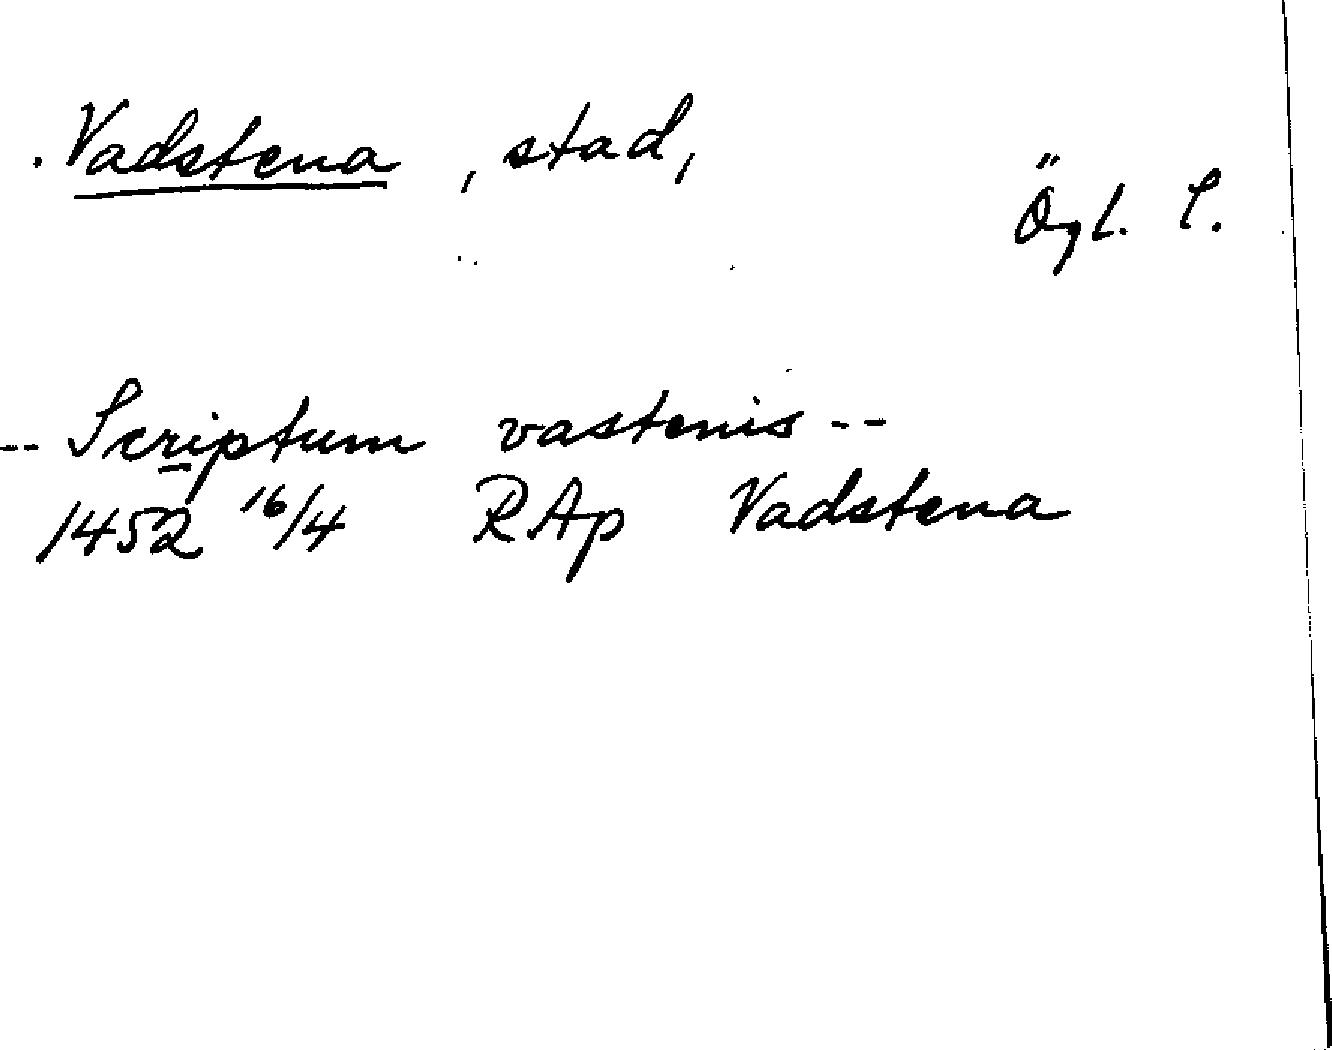 Vadstena , stad,
Ögl. l.
-- Scriptum vastenis --
1452 16/4 RAp Vadstena